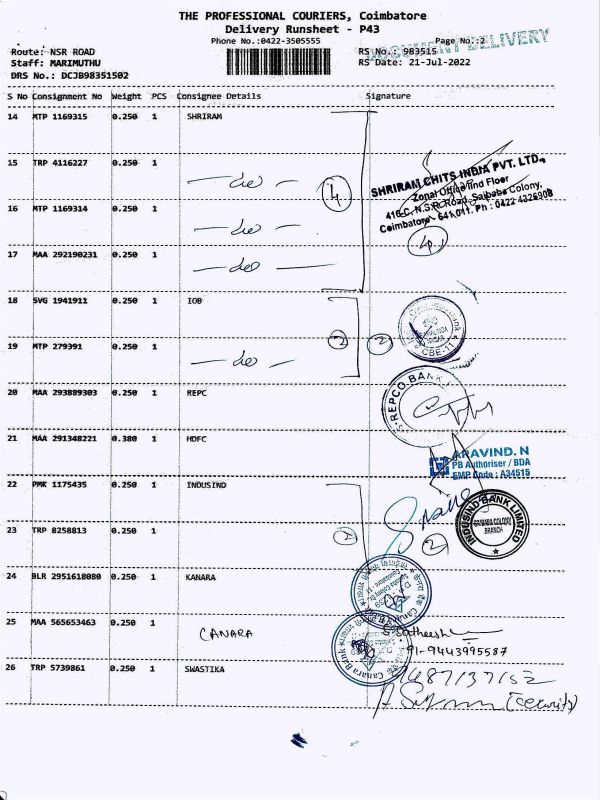 THE PROFESSIONAL COURIERS, Coimbatore
Delivery Runsheet - P43
Phone No.:0422-3505555
Page No.:2
DOCUMENT DELIVERY
Route: NSR ROAD
RS No.: 983515
Staff: MARIMUTHU
RS Date: 21-Jul-2022
DRS No.: DCJB98351502
S No Consignment No Weight PCS Consignee Details Signature
14 MTP 1169315 0.250 1 SHRIRAM
15 TRP 4116227 0.250 1 — do —
4
SHRIRAM CHITS INDIA PVT. LTD.,
Zonal Office IInd Floor
416-C, N.S.R. Road, Saibaba Colony,
Coimbatore - 641 011. Ph : 0422 4326908
16 MTP 1169314 0.250 1 — do —
17 MAA 292190231 0.250 1 — do —
18 SVG 1941911 0.250 1 IOB
2 2
CBE-11
19 MTP 279391 0.250 1 — do —
20 MAA 293889303 0.250 1 REPC
REPCO BANK
21 MAA 291348221 0.380 1 HDFC
ARAVIND. N
PB Authoriser / BDA
EMP Code : A34515
22 PMK 1175435 0.250 1 INDUSIND
2 2
INDUSIND BANK LIMITED
SAIBABA COLONY
BRANCH
23 TRP 8258813 0.250 1
24 BLR 2951618080 0.250 1 KANARA
Canara Bank
25 MAA 565653463 0.250 1 CANARA
Canara Bank
S. Satheesh
91-9443995587
26 TRP 5739861 0.250 1 SWASTIKA
(Security)